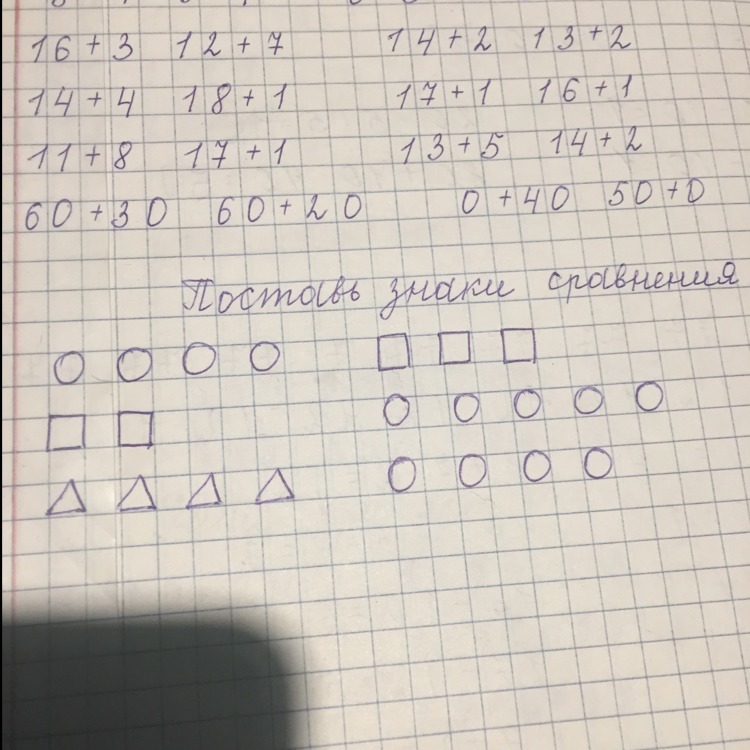 16 + 3 12 + 7 14 + 2 13 + 2
14 + 4 18 + 1 17 + 1 16 + 1
11 + 8 17 + 1 13 + 5 14 + 2
60 + 30 60 + 20 0 + 40 50 + 0
Поставь знаки сравнения